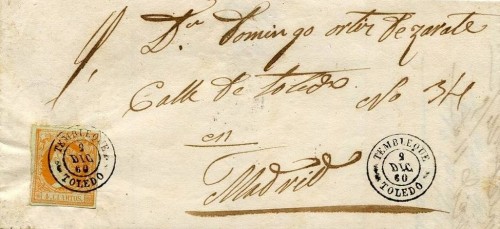 Dn Domingo ortiz de zarate
Calle de toledo No 34
en
Madrid
TEMBLEQUE
2
DIC
60
TOLEDO
TEMBLEQUE
2
DIC
60
TOLEDO
CUARTOS